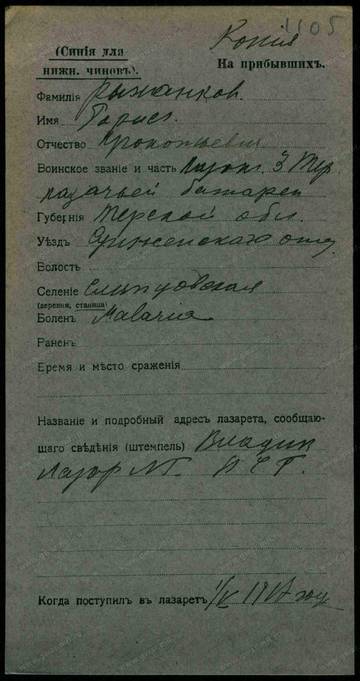 1105
Копія
(Синія для
нижн. чиновъ).
На прибывшихъ.
Фамилія Рыжанков
Имя Борис
Отчество Прокопьевич
Воинское званіе и часть 3 Тер.
казачьей батареи
Губернія Терской обл.
Уѣздъ Сунженскаго отд.
Волость
Селеніе Слепцовская
(деревня, станица)
Боленъ Malaria
Раненъ
Время и мѣсто сраженія
Названіе и подробный адресъ лазарета, сообщаю-
щаго свѣдѣнія (штемпель) Владик
Лазар №
Когда поступилъ въ лазаретъ 1/V 1917 год